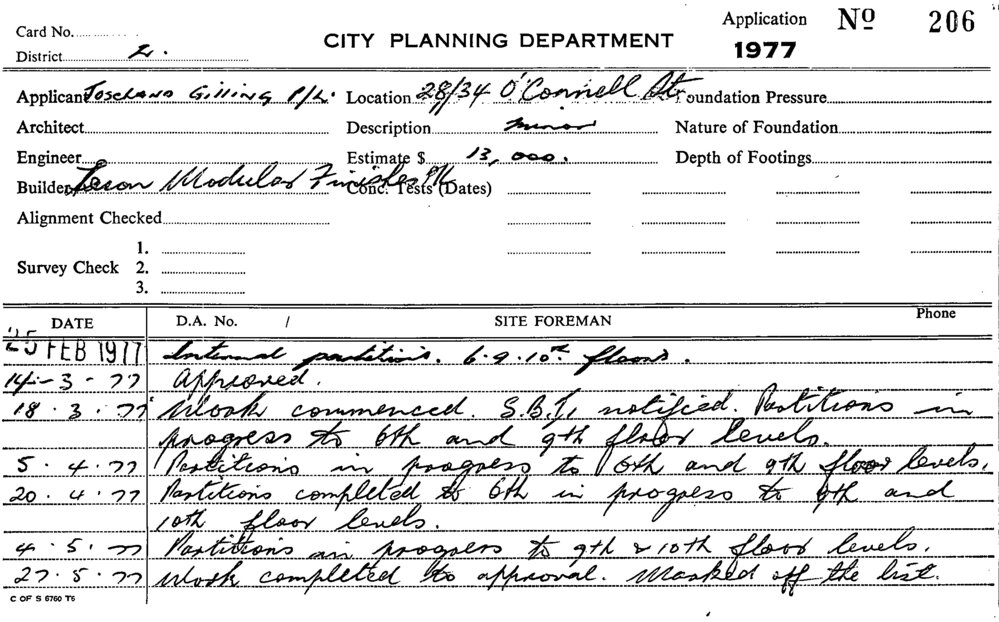 Card No.
District 2.
CITY PLANNING DEPARTMENT
Application Nº 206
1977
Applicant Joseland Gilling P/L. Location 28/34 O'Connell St. Foundation Pressure
Architect Description minor Nature of Foundation
Engineer Estimate $ 13,000. Depth of Footings
Builder Modular Finishes P/L Conc. Tests (Dates)
Alignment Checked
Survey Check 1.
2.
3.
DATE D.A. No. / SITE FOREMAN Phone
25 FEB 1977 Internal partitions. 6.9.10th floors.
14-3-77 Approved.
18.3.77 Work commenced. S.B.I. notified. Partitions in
progress to 6th and 9th floor levels.
5.4.77 Partitions in progress to 6th and 9th floor levels.
20.4.77 Partitions completed to 6th in progress to 9th and
10th floor levels.
4.5.77 Partitions in progress to 9th & 10th floor levels.
27.5.77 Work completed to approval. Marked off the list.
C OF S 6760 T6